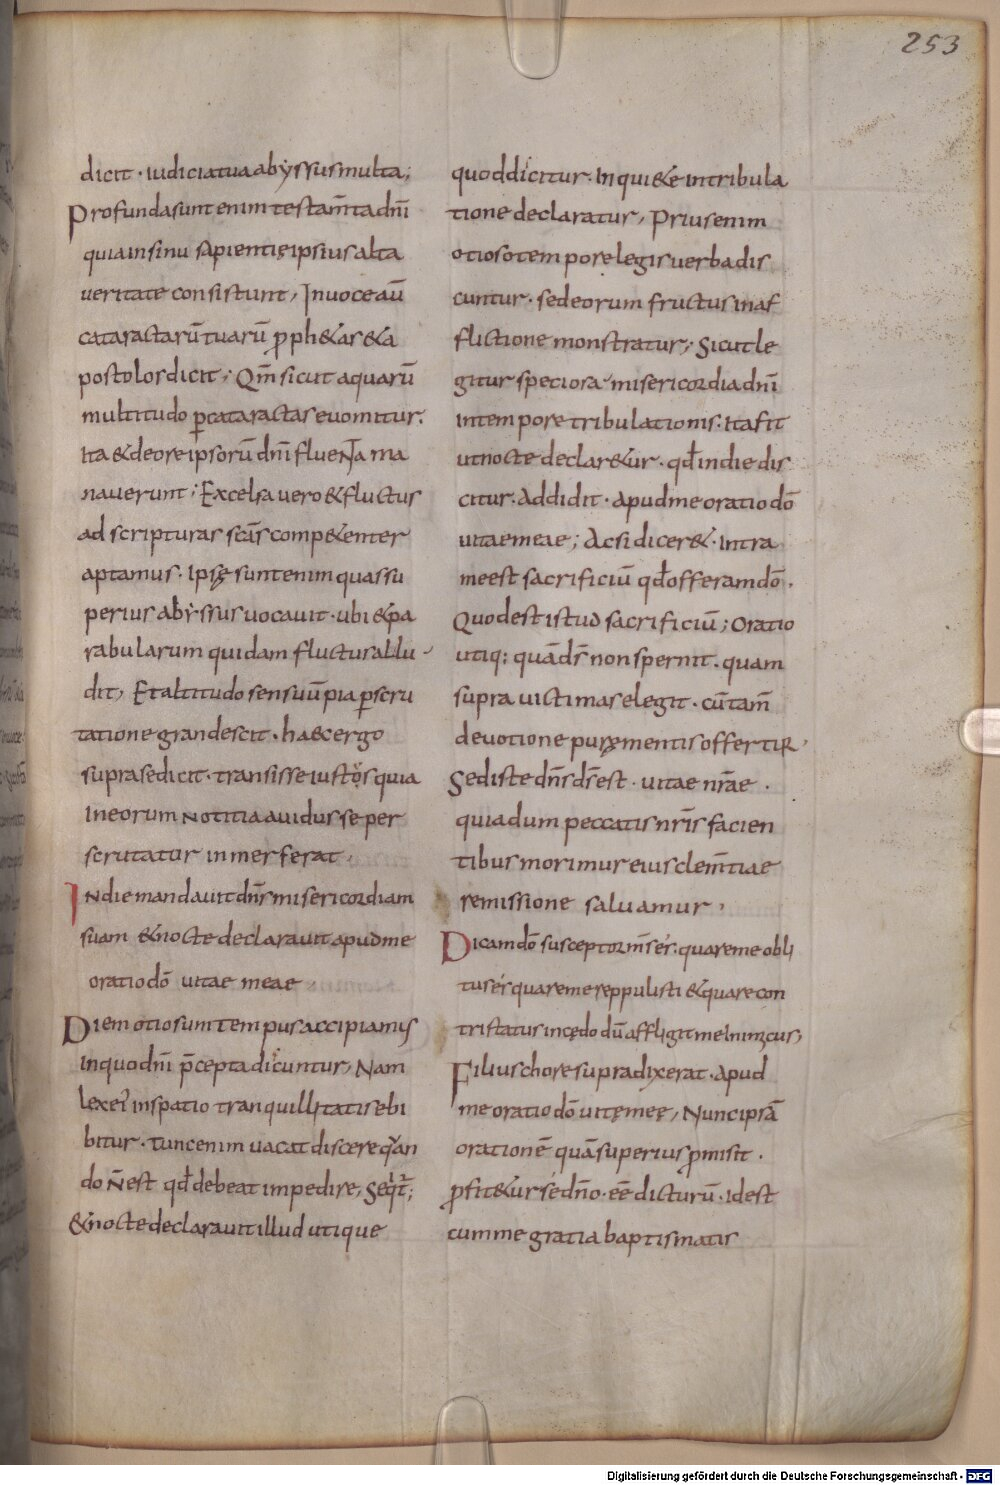 253
dicit · iudicia tua abyssus multa;
Profunda sunt enim testam̄ta dn̄i
quia in sinu sapientię ipsius alta
ueritate consistunt, In uoce aū
cataractarū tuarū ꝓph&as & a
postolos dicit; Qm̄ sicut aquarū
multitudo ꝑ cataractas euomitur.
Ita & de ore ipsorū dn̄i fluenta ma
nauerunt; Excelsa uero & fluctus
ad scripturas scās comp&enter
aptamus. Ipsę sunt enim quas su
perius abyssus uocauit · ubi & pa
rabularum quidam fluctus allu
dit, Et altitudo sensuū pia ꝑscru
tatione grandescit · haec ergo
supra se dicit · transisse iustos quia
in eorum notitia auidus se per
scrutatur inmerserat,
In die mandauit dn̄s misericordiam
suam & nocte declarauit apud me
oratio dō uitae meae
Diem otiosum tempus accipiamus
In quo dn̄i p̄cepta dicuntur, Nam
lex ei in spatio tranquillitatis ebi
bitur · tunc enim uacat discere quan
do n̄ est qd̄ debeat impedire, Seqt̄;
& nocte declarauit illud utique
quod dicitur. In qui&e in tribula
tione declaratur, Prius enim
otioso tempore legis uerba dis
cuntur · sed eorum fructus in af
flictione monstratur; Sicut le
gitur speciosa misericordia dn̄i
in tempore tribulationis. Ita fit
ut nocte declar&ur · qd̄ in die dis
citur. Addidit · apud me oratio dō
uitae meae; Ac si dicer& · intra
me est sacrificiū qd̄ offeram dō.
Quod est istud sacrificiū; Oratio
utiq; quā ds̄ non spernit. quam
supra uictimas elegit · cū tam̄
deuotione purę mentis offertur,
Sed iste dn̄s ds̄ est · uitae nr̄ae ·
quia dum peccatis nr̄is facien
tibus morimur eius clem̄tiae
remissione saluamur,
Dicam dō susceptor m̄s es. quare me obli
tus es quare me reppulisti & quare con
tristatus incędo dū affligit me inimicus,
Filius chore supra dixerat · apud
me oratio dō uitę meę, Nunc ipsā
orationē quā superius ꝓmisit ·
ꝓfit&ur se dn̄o · eē dicturū · id est
cum me gratia baptismatis
Digitalisierung gefördert durch die Deutsche Forschungsgemeinschaft - DFG